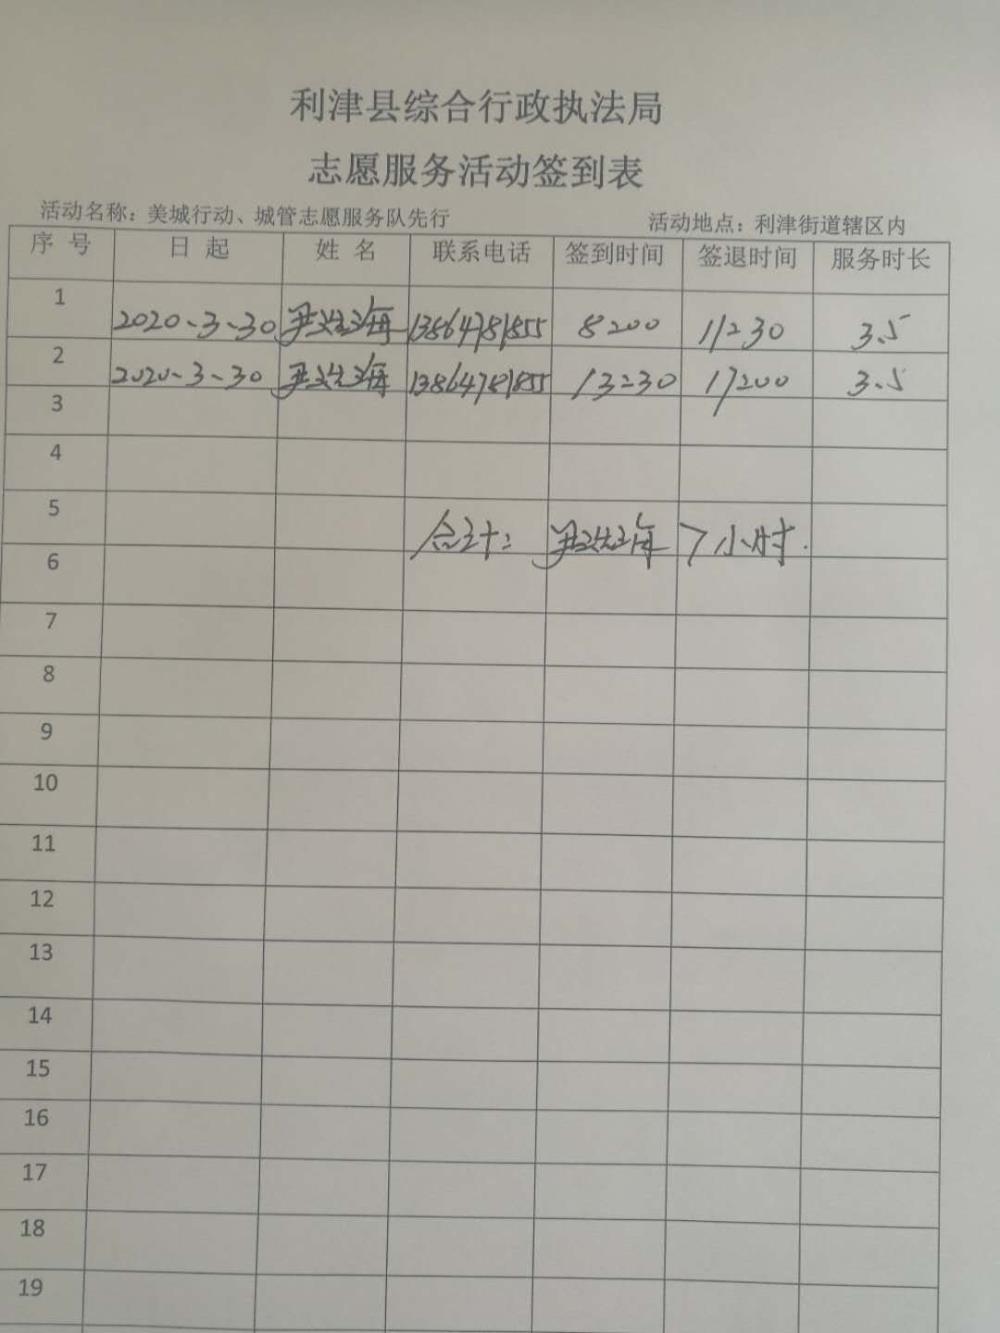 利津县综合行政执法局
志愿服务活动签到表
活动名称：美城行动、城管志愿服务队先行 活动地点：利津街道辖区内
序 号 日 起 姓 名 联系电话 签到时间 签退时间 服务时长
1 2020-3-30 尹洪海 13864781855 8:00 11:30 3.5
2 2020-3-30 尹洪海 13864781855 13:30 17:00 3.5
3
4
5
合计： 尹洪海 7小时.
6
7
8
9
10
11
12
13
14
15
16
17
18
19